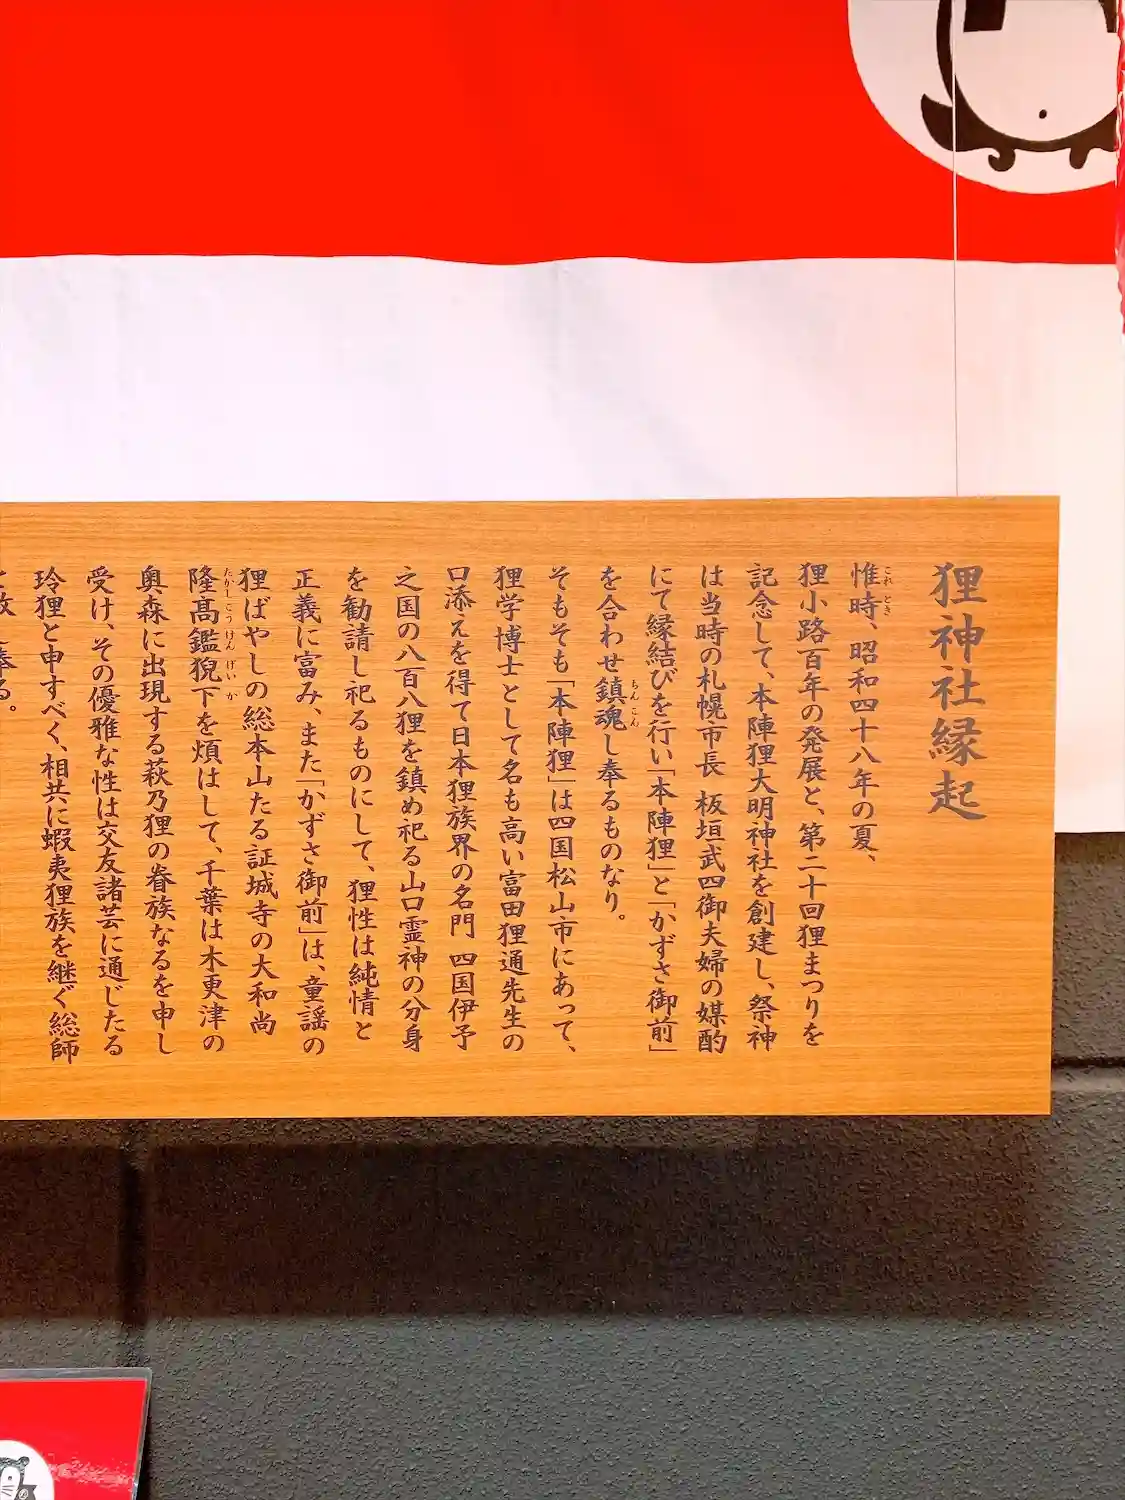 狸神社縁起
惟時、昭和四十八年の夏、
これとき
狸小路百年の発展と、第二十回狸まつりを
記念して、本陣狸大明神社を創建し、祭神
は当時の札幌市長 板垣武四御夫婦の媒酌
にて縁結びを行い「本陣狸」と「かずさ御前」
を合わせ鎮魂し奉るものなり。
ちんこん
そもそも「本陣狸」は四国松山市にあって、
狸学博士として名も高い富田狸通先生の
口添えを得て日本狸族界の名門 四国伊予
之国の八百八狸を鎮め祀る山口霊神の分身
を勧請し祀るものにして、狸性は純情と
正義に富み、また「かずさ御前」は、童謡の
狸ばやしの総本山たる証城寺の大和尚
隆髙鑑猊下を煩はして、千葉は木更津の
たかしこうけんげいか
奥森に出現する萩乃狸の眷族なるを申し
受け、その優雅な性は交友諸芸に通じたる
玲狸と申すべく、相共に蝦夷狸族を継ぐ総師
奉る。